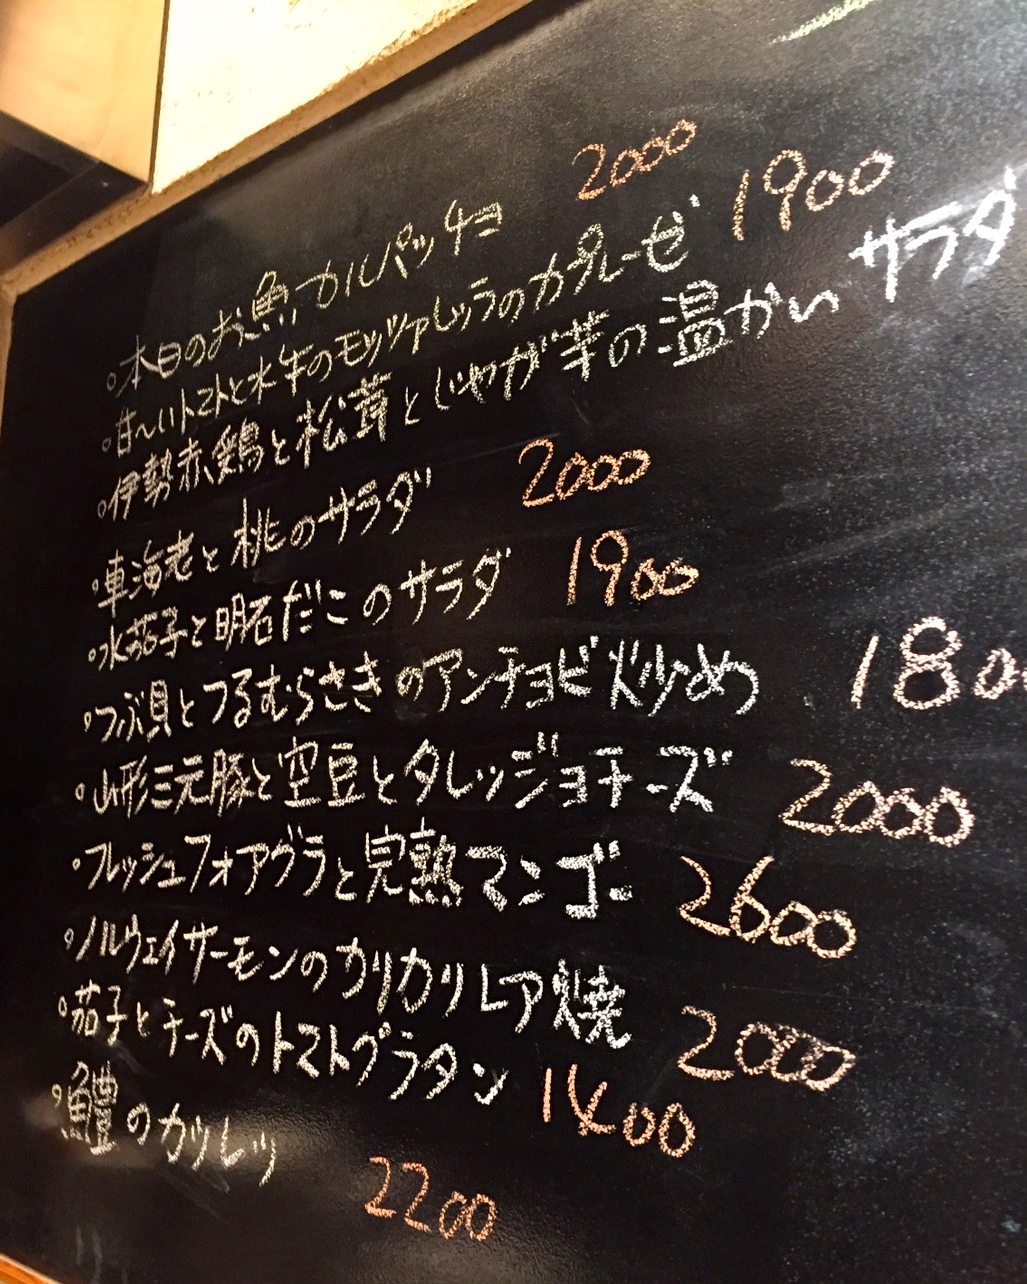 。本日のお魚カルパッチョ 2000
。甘~いトマトと水牛のモッツァレッラのカプレーゼ 1900
。伊勢赤鶏と松茸とじゃが芋の温かいサラダ
。車海老と桃のサラダ 2000
。水茄子と明石だこのサラダ 1900
。つぶ貝とつるむらさきのアンチョビ炒め 180
。山形三元豚と空豆とタレッジョチーズ 2000
。フレッシュフォアグラと完熟マンゴー 2600
。ノルウェイサーモンのカリカリレア焼 2000
。茄子とチーズのトマトグラタン 1400
。鱧のカツレツ 2200